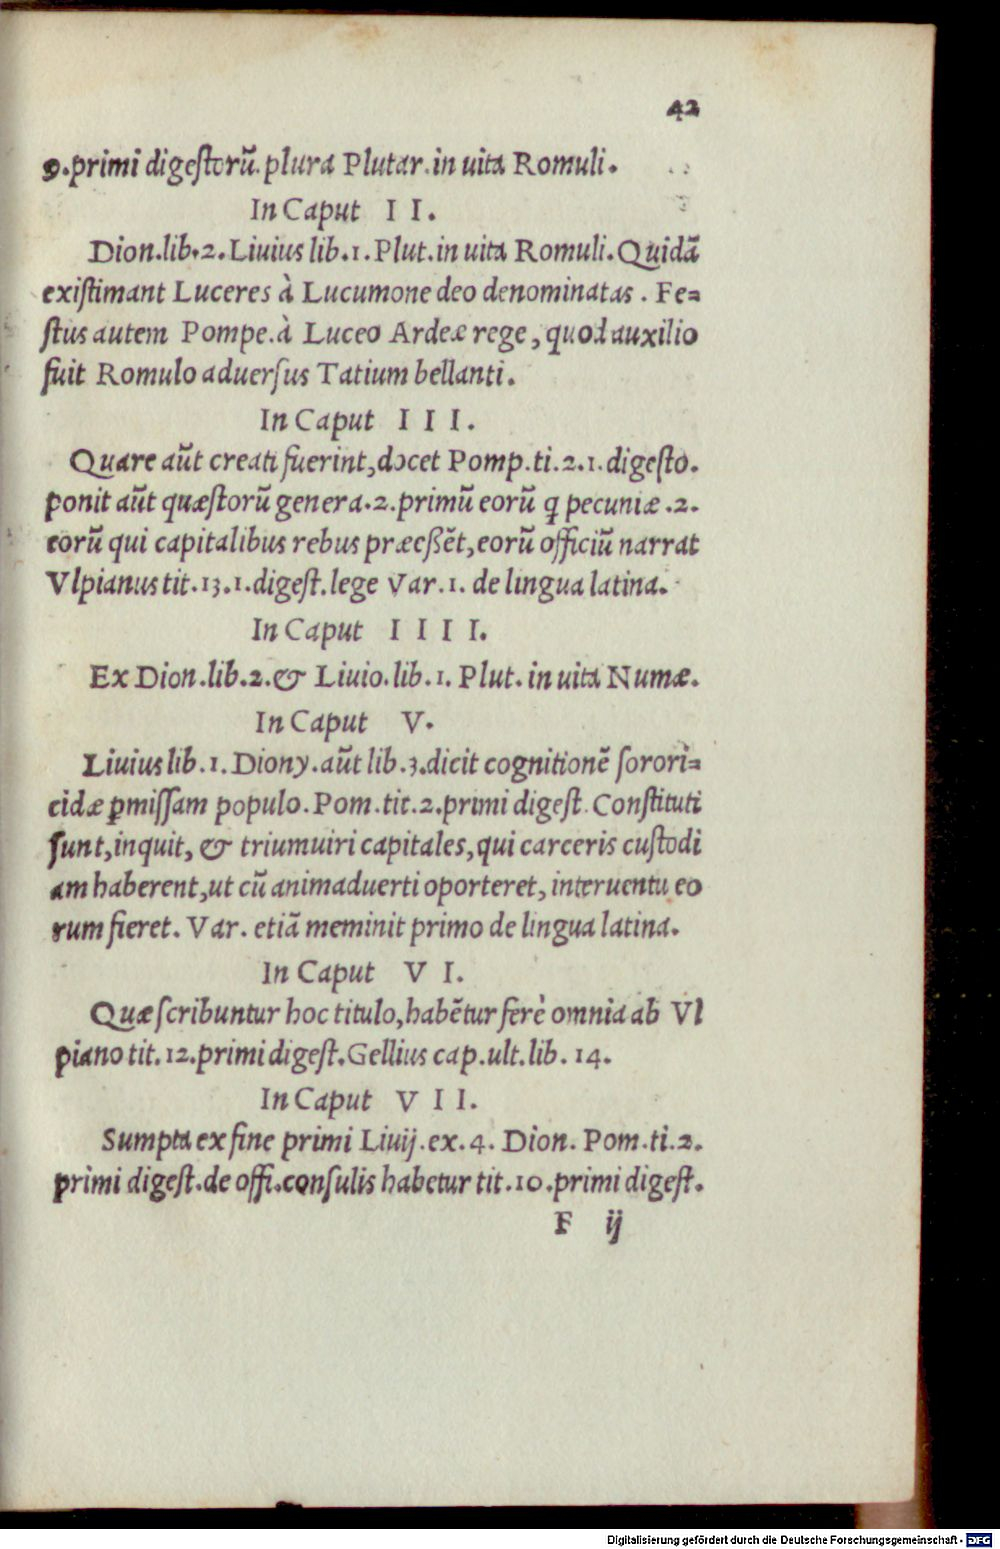 42
9.primi digestorũ.plura Plutar.in uita Romuli.
In Caput II.
Dion.lib.2.Liuius lib.1.Plut.in uita Romuli.Quidã
existimant Luceres à Lucumone deo denominatas. Fe=
stus autem Pompe.à Luceo Ardeæ rege, quod auxilio
fuit Romulo aduersus Tatium bellanti.
In Caput III.
Quare aũt creati fuerint,docet Pomp.ti.2.1.digesto.
ponit aũt quæstorũ genera.2.primũ eorũ ꝗ pecuniæ.2.
eorũ qui capitalibus rebus præeßẽt,eorũ officiũ narrat
Vlpianus tit.13.1.digest.lege Var.1. de lingua latina.
In Caput IIII.
Ex Dion.lib.2.& Liuio.lib.1.Plut.in uita Numæ.
In Caput V.
Liuius lib.1.Diony.aũt lib.3.dicit cognitionẽ sorori=
cidæ ꝑmissam populo.Pom.tit.2.primi digest.Constituti
sunt,inquit, & triumuiri capitales,qui carceris custodi
am haberent,ut cũ animaduerti oporteret, interuentu eo
rum fieret. Var. etiã meminit primo de lingua latina.
In Caput VI.
Quæ scribuntur hoc titulo,habẽtur ferè omnia ab Vl
piano tit.12.primi digest.Gellius cap.ult.lib.14.
In Caput VII.
Sumpta ex fine primi Liuij.ex.4. Dion. Pom.ti.2.
primi digest.de offi.consulis habetur tit.10.primi digest.
F ij
Digitalisierung gefördert durch die Deutsche Forschungsgemeinschaft - DFG